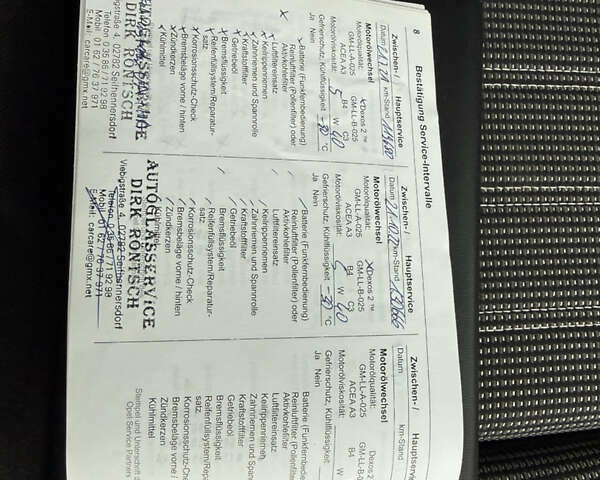 8 Bestätigung Service-Intervalle
Zwischen- / Hauptservice
Datum km-Stand
Motorölwechsel
Motorölqualität: Dexos 2 ™
GM-LL-A-025 GM-LL-B-025
ACEA A3 B4 C3
Motorölviskosität: 5 W 40
Gefrierschutz, Kühlflüssigkeit -30 °C
Ja Nein
Batterie (Funkfernbedienung)
Reinluftfilter (Pollenfilter) oder
Aktivkohlefilter
Luftfiltereinsatz
Keilrippenriemen
Zahnriemen und Spannrolle
Kraftstofffilter
Getriebeöl
Bremsflüssigkeit
Reifenfüllsystem/Reparatur-
satz
Korrosionsschutz-Check
Bremsbeläge vorne / hinten
Zündkerzen
Kühlmittel
AUTOGLASSERVICE
DIRK RÖNTSCH
Viebigstraße 4, 02782 Seifhennersdorf
Telefon 0 35 86 / 71 92 98
Mobil: 01 62 / 76 37 971
E-Mail: carcare@gmx.net
Zwischen- / Hauptservice
Datum 21.10.22 km-Stand 130666
Motorölwechsel
Motorölqualität: Dexos 2 ™
GM-LL-A-025 GM-LL-B-025
ACEA A3 B4 C3
Motorölviskosität: 5 W 40
Gefrierschutz, Kühlflüssigkeit -30 °C
Ja Nein
Batterie (Funkfernbedienung)
Reinluftfilter (Pollenfilter) oder
Aktivkohlefilter
Luftfiltereinsatz
Keilrippenriemen
Zahnriemen und Spannrolle
Kraftstofffilter
Getriebeöl
Bremsflüssigkeit
Reifenfüllsystem/Reparatur-
satz
Korrosionsschutz-Check
Bremsbeläge vorne / hinten
Zündkerzen
Kühlmittel
AUTOGLASSERVICE
DIRK RÖNTSCH
Viebigstraße 4, 02782 Seifhennersdorf
Telefon 0 35 86 / 71 92 98
Mobil: 01 62 / 76 37 971
E-Mail: carcare@gmx.net
Zwischen- / Hauptservice
Datum km-Stand
Motorölwechsel
Motorölqualität: Dexos 2
GM-LL-A-025 GM-LL-B-025
ACEA A3 B4
Motorölviskosität:
Gefrierschutz, Kühlflüssigkeit
Ja Nein
Batterie (Funkfernbedienung)
Reinluftfilter (Pollenfilter)
Aktivkohlefilter
Luftfiltereinsatz
Keilrippenriemen
Zahnriemen und Spannrolle
Kraftstofffilter
Getriebeöl
Bremsflüssigkeit
Reifenfüllsystem/Repa
satz
Korrosionsschutz-Check
Bremsbeläge vorne /
Zündkerzen
Kühlmittel
Stempel und Unterschrift
Opel Service Partners